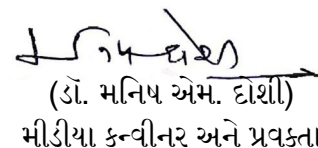 મનિષ દોશી
(ડૉ. મનિષ એમ. દોશી)
મીડીયા કન્વીનર અને પ્રવક્તા